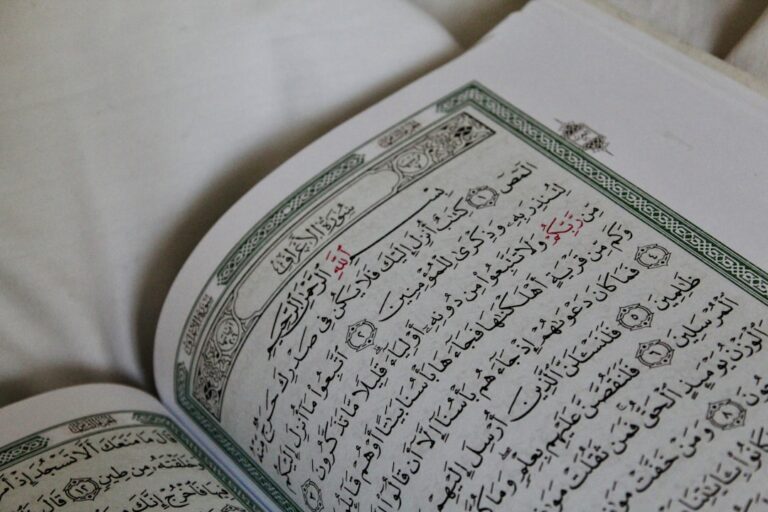 سُورَةُ الْأَعْرَافِ
بِسْمِ اللَّهِ الرَّحْمَٰنِ الرَّحِيمِ
الٓمٓصٓ ١ كِتَٰبٌ أُنزِلَ إِلَيْكَ فَلَا يَكُن فِي صَدْرِكَ حَرَجٌ مِّنْهُ
لِتُنذِرَ بِهِۦ وَذِكْرَىٰ لِلْمُؤْمِنِينَ ٢ ٱتَّبِعُوا۟ مَآ أُنزِلَ إِلَيْكُم
مِّن رَّبِّكُمْ وَلَا تَتَّبِعُوا۟ مِن دُونِهِۦٓ أَوْلِيَآءَ قَلِيلًا مَّا تَذَكَّرُونَ ٣
وَكَم مِّن قَرْيَةٍ أَهْلَكْنَٰهَا فَجَآءَهَا بَأْسُنَا بَيَٰتًا أَوْ هُمْ
٤ فَمَا كَانَ دَعْوَىٰهُمْ إِذْ جَآءَهُم بَأْسُنَآ إِلَّآ أَن قَالُوٓا۟
ظَٰلِمِينَ ٥ فَلَنَسْـَٔلَنَّ ٱلَّذِينَ أُرْسِلَ إِلَيْهِمْ
ٱلْمُرْسَلِينَ ٦ فَلَنَقُصَّنَّ عَلَيْهِم بِعِلْمٍ وَمَا
ٱلْوَزْنُ يَوْمَئِذٍ ٱلْحَقُّ فَمَن ثَقُلَتْ
٨ وَمَنْ خَفَّتْ
كَانُوا۟ بِـَٔايَٰتِنَا
قَالَ مَا مَنَعَكَ أَلَّا تَسْجُدَ إِذْ
مِن طِينٍ ١٢ قَالَ
فَٱخْرُجْ إِنَّكَ